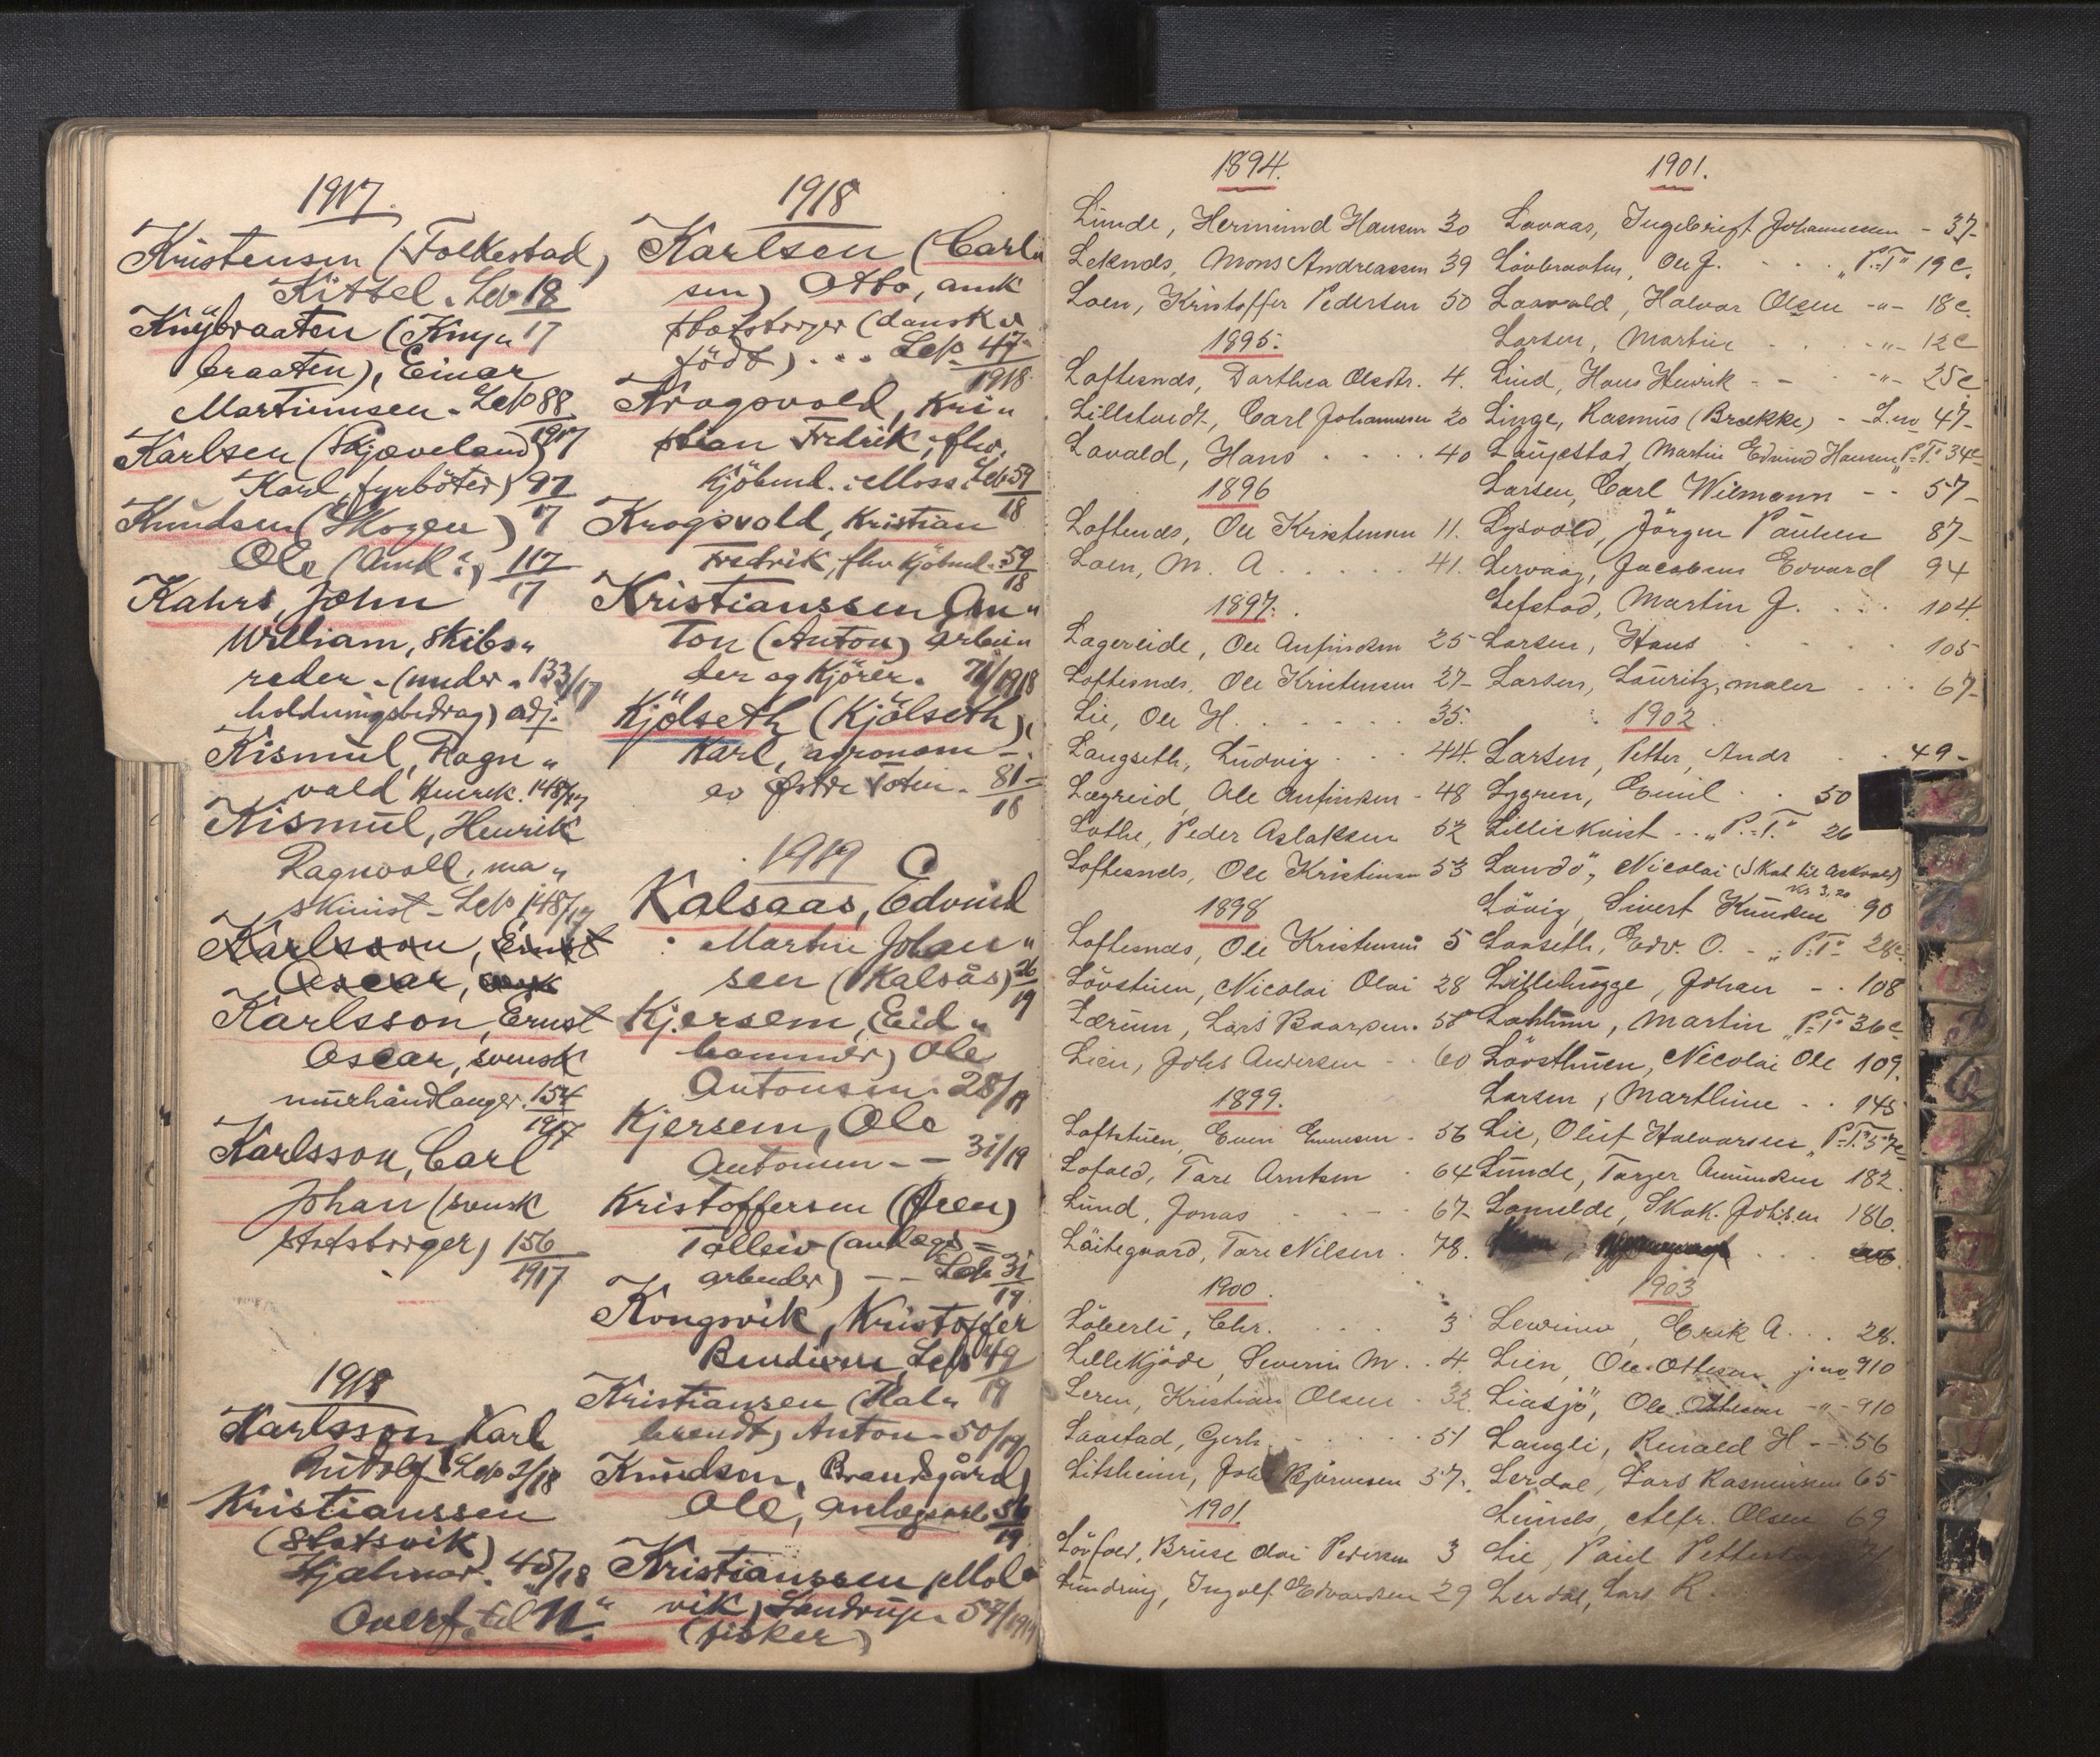 1917.
Kristensen (Folkestad)
Kittel. Lep 18
Knybraaten (Kny„ 17
braaten), Einar
Martiniusen. Lep 88
Karlsen (Skjæveland) 1917
Karl, fyrböter) 97
Knudsen (Skogen) 17
Ole (Amk.) 117
Kahrs, John 17
William, Skibs„
reder - (under„ 133/17
holdningsbidrag) adj.
Kismul, Ragn„
vald Henrik. 148/17
Kismul, Henrik
Ragnvall, ma„
skinist - Lep 148/17
Karlsson, Ernst
Oscar,
Karlsson, Ernst
Oscar, svensk
murhåndlanger. 154
1917
Karlsson, Carl
Johan (svensk
statsborger) 156
1917
1918
Karlsson, Karl
Rudolf Lep 2/18
Kristianssen
(Statsvik)
Hjalmar. 45/18
Overf. til "N".
1918
Karlsen (Carl„
sen) Otto, amk
statsborger (dansk
født) ... Lep. 47
1918
Krogsvold, Kri„
stian Fredrik, fhv.
Kjöbmd. i Moss. Lep 59
18
Krogsvold, Kristian
Fredrik, fhv Kjöbmd. 59
18
Kristianssen, An„
ton (Anton) arbei„
der og Kjörer. 71/1918
Kjölseth (Kjølseth),
Karl, agronom -
av Østre Toten. 81
18
1919
Kalsaas, Edvind
Martin Johan„
sen (Kalsås) 26
19
Kjersem, Eid„
hammer) Ole
Antonsen. 28/19
Kjersem, Ole
Antonsen - - 31/19
Kristoffersen (Øien)
Talleiv (anlægs=
arbeider) - - Lep. 31
19
Kongsvik, Kristoffer
Bendixen, Lep 49
Kristiansen (Kal„ 19
brendt) Anton - 50/19
Knudsen, Brandsgård)
Ole, anlægsarb. 56
19
Kristianssen, Mol„
vik) Sandrup. 57/1919
(fisker)
1894.
Lunde, Hermund Hansen 30
Leknds, Mons Andreassen 39
Loen, Kristoffer Pedersen 50
1895.
Loftesnds, Dorthea Olsdtr. 4.
Lillstvedt, Carl Johannesen 20
Lavald, Hans . . . . 40
1896
Loftends, Ole Kristensen 11.
Loen, M. A . . . . . 41.
1897.
Lagereide, Ole Anfindsen 25
Loftesnds, Ole Kristensen 27-
Lie, Ole H. . . . . . 35.
Langseth, Ludvig . . . 44.
Lægreid, Ole Anfindsen - 48
Lothe, Peder Aslaksen 52
Loftesnds, Ole Kristensen 53
1898
Loftesnds, Ole Kristensen 5
Lövstuen, Nicolai Olai 28
Lærum, Lars Baardsen. 58
Lien, Johs Andersen - . 60
1899.
Loftstuen, Even Evensen - 56
Lofald, Tore Arntsen . 64
Lund, Jonas - - - - 67-
Läitegaard, Tore Nilsen. 78.
1900.
Löberli, Chr. . . . . 3
Lillekjøde, Severin M. . 4.
Leren, Kristian Olsen . 32.
Laastad, Gerh. . . . . 51
Litsheim, Johs Bjørnsen 57.
1901.
Lövfald, Bruse Olai Pedersen 3
Lundring, Ingolf Edvardsen 29
1901.
Lavaas, Ingebrigt Johannesen - 37-
Lövbraaten, Ole J. . . . „P.T" 19c.
Laavald, Halvor Olsen -„- 18c.
Larsen, Martin . . . -„- 12c
Lind, Hans Henrik - - -„- 25c
Linge, Rasmus (Brække) - L.no 47-
Laugestad, Martin Edvind Hansen „P.T." 34c
Larsen, Carl Wilmann - - 57-
Lysvold, Jörgen Paulsen 87-
Lervaag, Jacobus Edvard 94
Lefstad, Martin J. . . . 104.
Larsen, Hans . . . 105
Larsen, Lauritz, maler . . . 67-
1902
Larsen, Petter, Andr . . 49-
Lygren, Emil . . 50
Lilliskvist . . „P.T." 26
Landö, Nicolai (Skat til Askvold)
Kr 3,20
Lövig, Sivert Knudsen 90
Laaseth, Edv. O. - „P.T" 28c.
Lillehugge, Johan - . 108
Lohlinn, Martin „P.T" 36c
Lövsthuen, Nicolai Ole 109.
Larsen, Marthine . . 145
Lie, Oluf Halvorsen „P.T." 57c
Lunde, Torger Amundsen 182.
Lomelde, Skak. Johsen 186.
1903
Lewinw, Erik A. . . 28.
Lien, Ole Ottesen j.no 910
Liasjö, Ole Ottesen -„- 910
Langli, Renald H - - 56
Lerdal, Lars Rasmussen 65
Lunds, Alfr. Olsen 69
Lie, Paul Petters
Lerdal, Lars R.